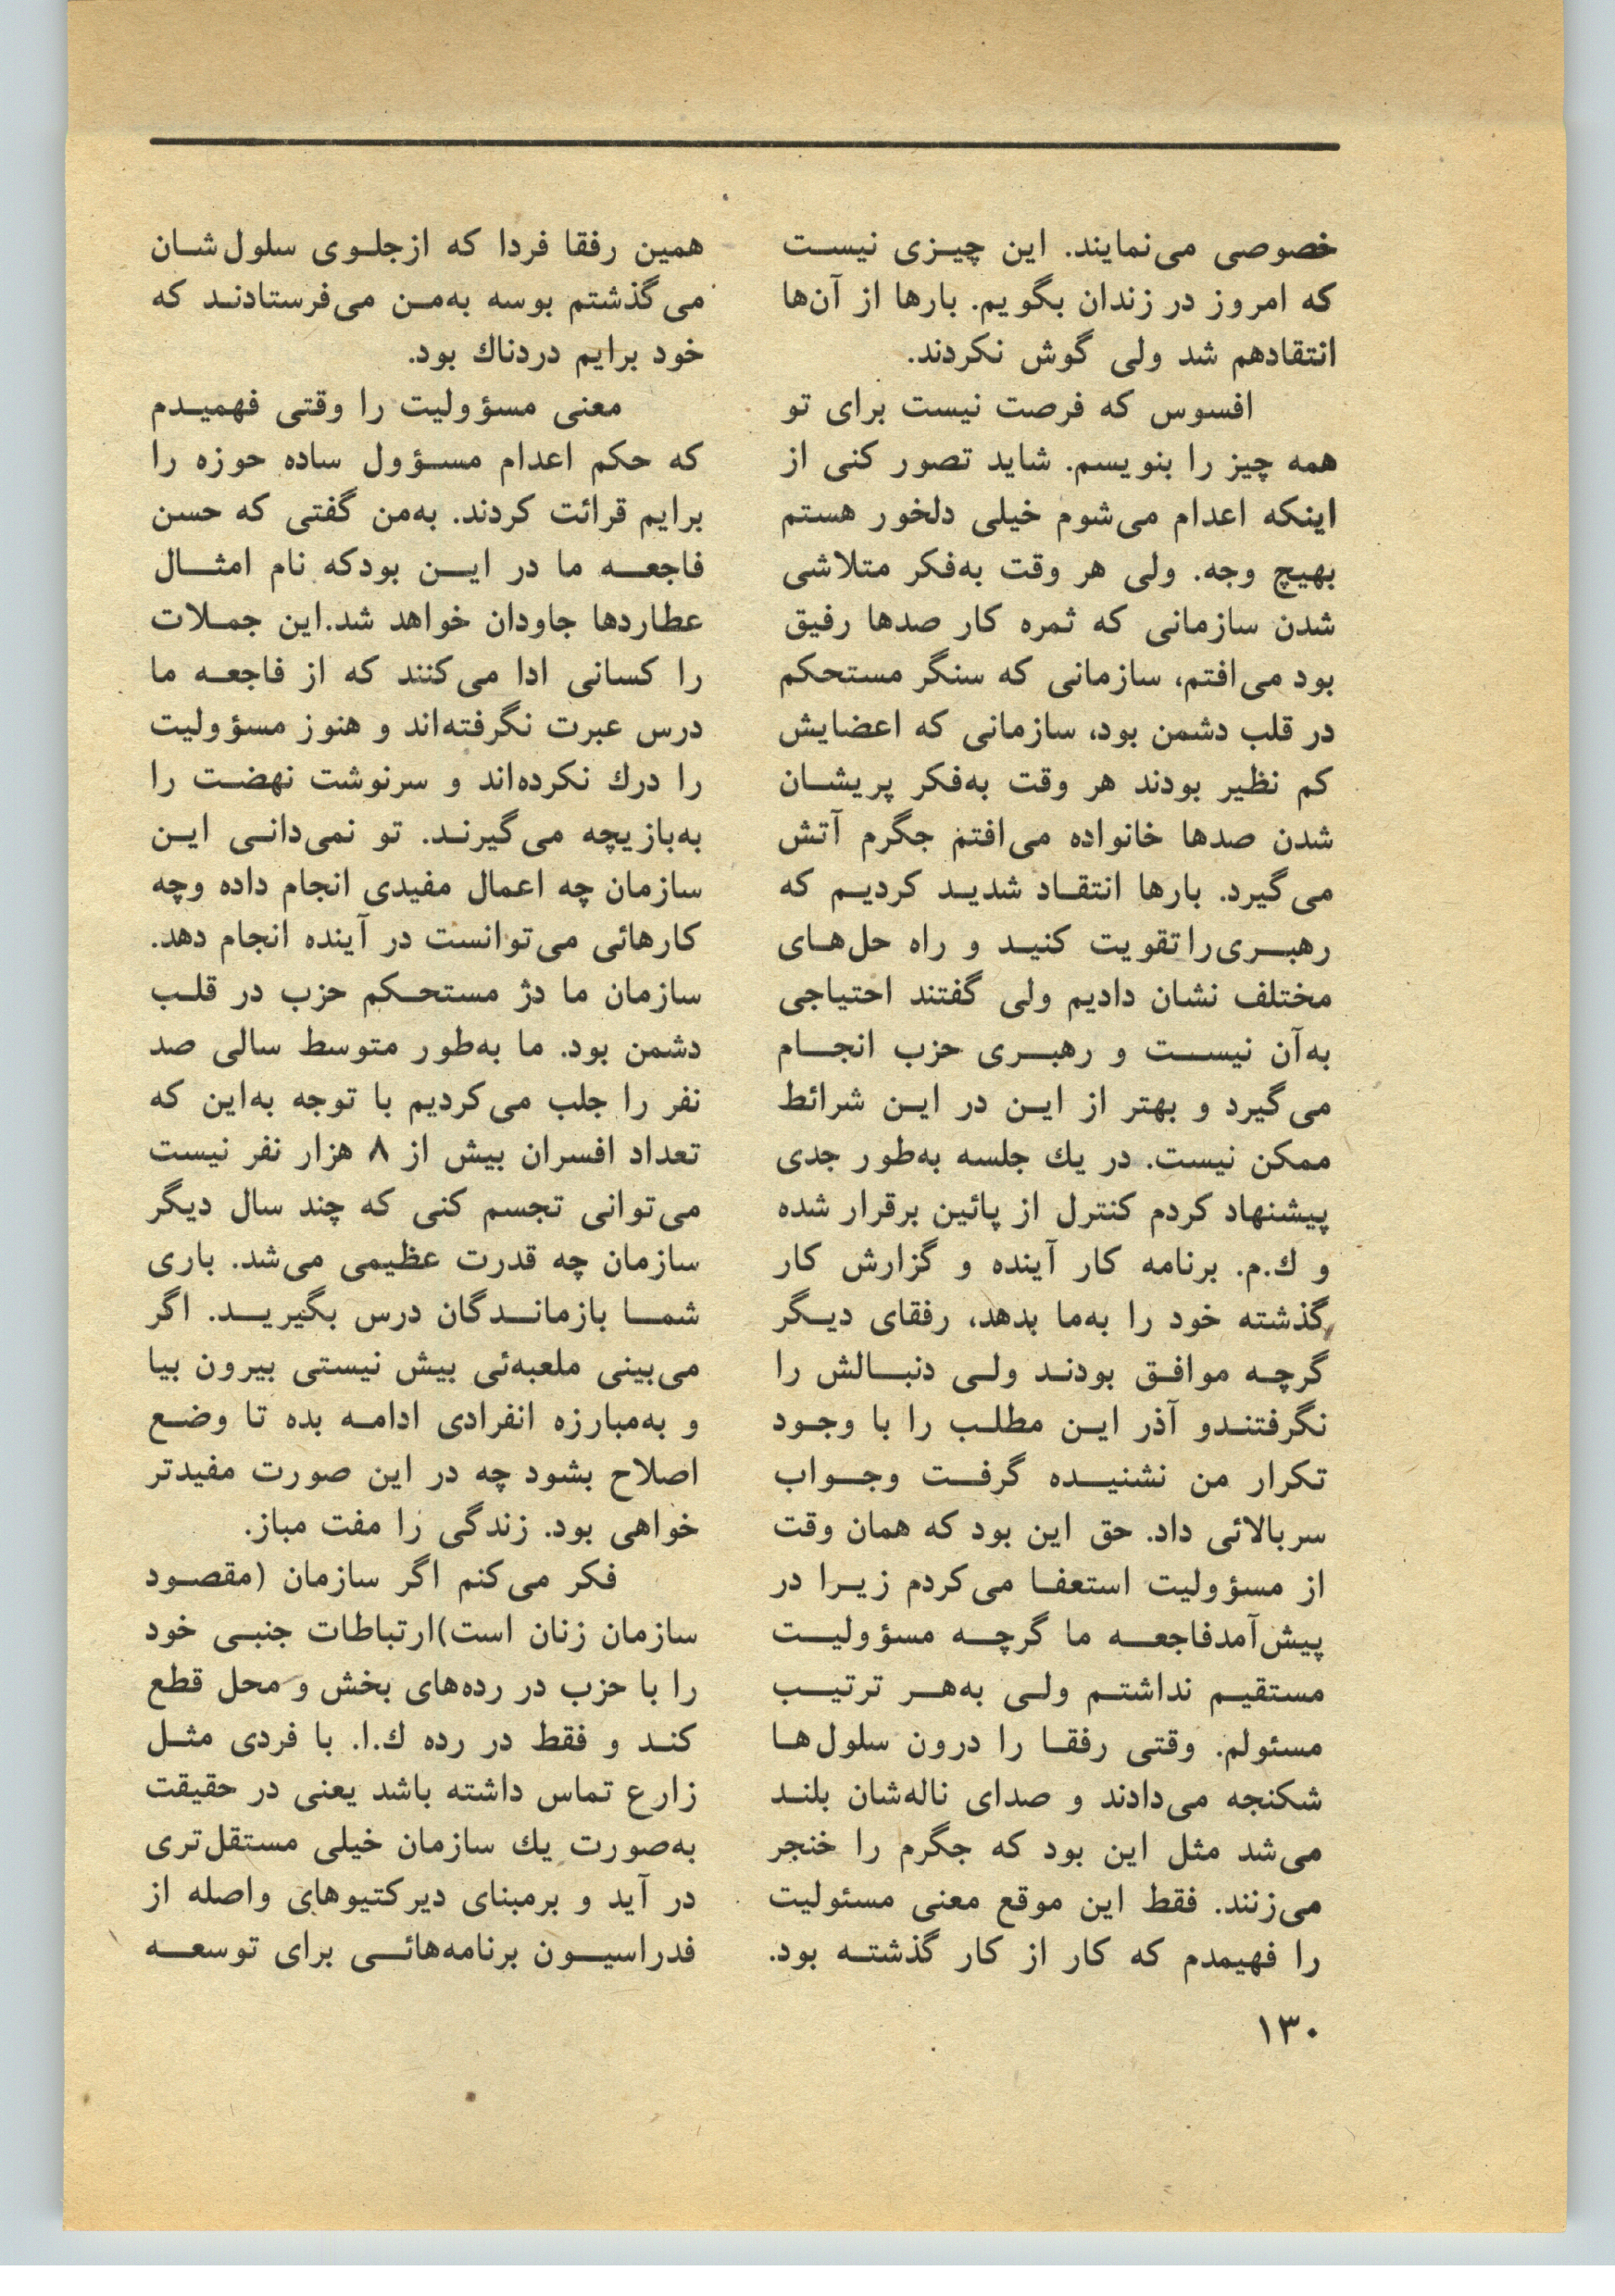 خصوصی می‌نمایند. این چیزی نیست
که امروز در زندان بگویم. بارها از آن‌ها
انتقادهم شد ولی گوش نکردند.
افسوس که فرصت نیست برای تو
همه چیز را بنویسم. شاید تصور کنی از
اینکه اعدام می‌شوم خیلی دلخور هستم
بهیچ وجه. ولی هر وقت به‌فکر متلاشی
شدن سازمانی که ثمره کار صدها رفیق
بود می‌افتم، سازمانی که سنگر مستحکم
در قلب دشمن بود، سازمانی که اعضایش
کم نظیر بودند هر وقت به‌فکر پریشان
شدن صدها خانواده می‌افتم جگرم آتش
می‌گیرد. بارها انتقاد شدید کردیم که
رهبری‌را تقویت کنید و راه حل‌های
مختلف نشان دادیم ولی گفتند احتیاجی
به‌آن نیست و رهبری حزب انجام
می‌گیرد و بهتر از این در این شرائط
ممکن نیست. در یك جلسه به‌طور جدی
پیشنهاد کردم کنترل از پائین برقرار شده
و ك.م. برنامه کار آینده و گزارش کار
گذشته خود را به‌ما بدهد، رفقای دیگر
گرچه موافق بودند ولی دنبالش را
نگرفتندو آذر این مطلب را با وجود
تکرار من نشنیده گرفت وجواب
سربالائی داد. حق این بود که همان وقت
از مسؤولیت استعفا می‌کردم زیرا در
پیش‌آمدفاجعه ما گرچه مسؤولیت
مستقیم نداشتم ولی به‌هر ترتیب
مسئولم. وقتی رفقا را درون سلول‌ها
شکنجه می‌دادند و صدای ناله‌شان بلند
می‌شد مثل این بود که جگرم را خنجر
می‌زنند. فقط این موقع معنی مسئولیت
را فهیمدم که کار از کار گذشته بود.
همین رفقا فردا که ازجلوی سلول‌شان
می‌گذشتم بوسه به‌من می‌فرستادند که
خود برایم دردناك بود.
معنی مسؤولیت را وقتی فهمیدم
که حکم اعدام مسؤول ساده حوزه را
برایم قرائت کردند. به‌من گفتی که حسن
فاجعه ما در این بودکه نام امثال
عطاردها جاودان خواهد شد.این جملات
را کسانی ادا می‌کنند که از فاجعه ما
درس عبرت نگرفته‌اند و هنوز مسؤولیت
را درك نکرده‌اند و سرنوشت نهضت را
به‌بازیچه می‌گیرند. تو نمی‌دانی این
سازمان چه اعمال مفیدی انجام داده وچه
کارهائی می‌توانست در آینده انجام دهد.
سازمان ما دژ مستحکم حزب در قلب
دشمن بود. ما به‌طور متوسط سالی صد
نفر را جلب می‌کردیم با توجه به‌این که
تعداد افسران بیش از ۸ هزار نفر نیست
می‌توانی تجسم کنی که چند سال دیگر
سازمان چه قدرت عظیمی می‌شد. باری
شما بازماندگان درس بگیرید. اگر
می‌بینی ملعبه‌ئی بیش نیستی بیرون بیا
و به‌مبارزه انفرادی ادامه بده تا وضع
اصلاح بشود چه در این صورت مفیدتر
خواهی بود. زندگی را مفت مباز.
فکر می‌کنم اگر سازمان (مقصود
سازمان زنان است)ارتباطات جنبی خود
را با حزب در رده‌های بخش و محل قطع
کند و فقط در رده ك.ا. با فردی مثل
زارع تماس داشته باشد یعنی در حقیقت
به‌صورت یك سازمان خیلی مستقل‌تری
در آید و برمبنای دیرکتیوهای واصله از
فدراسیون برنامه‌هائی برای توسعه
۱۳۰